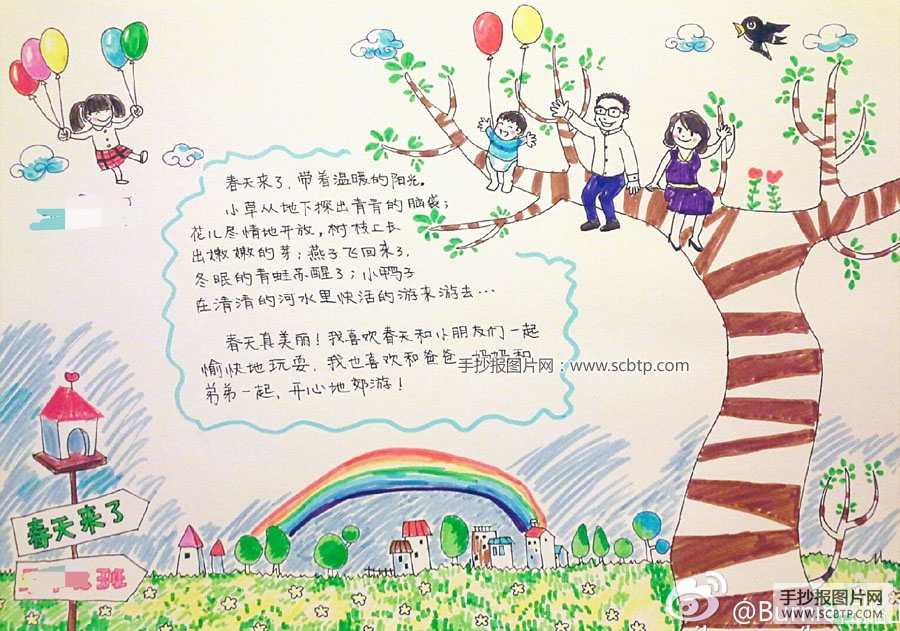 春天来了，带着温暖的阳光。
小草从地下探出青青的脑袋；
花儿尽情地开放，树枝上长
出嫩嫩的芽；燕子飞回来了，
冬眠的青蛙苏醒了；小鸭子
在清清的河水里快活的游来游去…
春天真美丽！我喜欢春天和小朋友们一起
愉快地玩耍，我也喜欢和爸爸、妈妈和
弟弟一起，开心地郊游！
手抄报图片网：www.scbtp.com
春天来了
班
手抄报图片网
WWW.SCBTP.COM